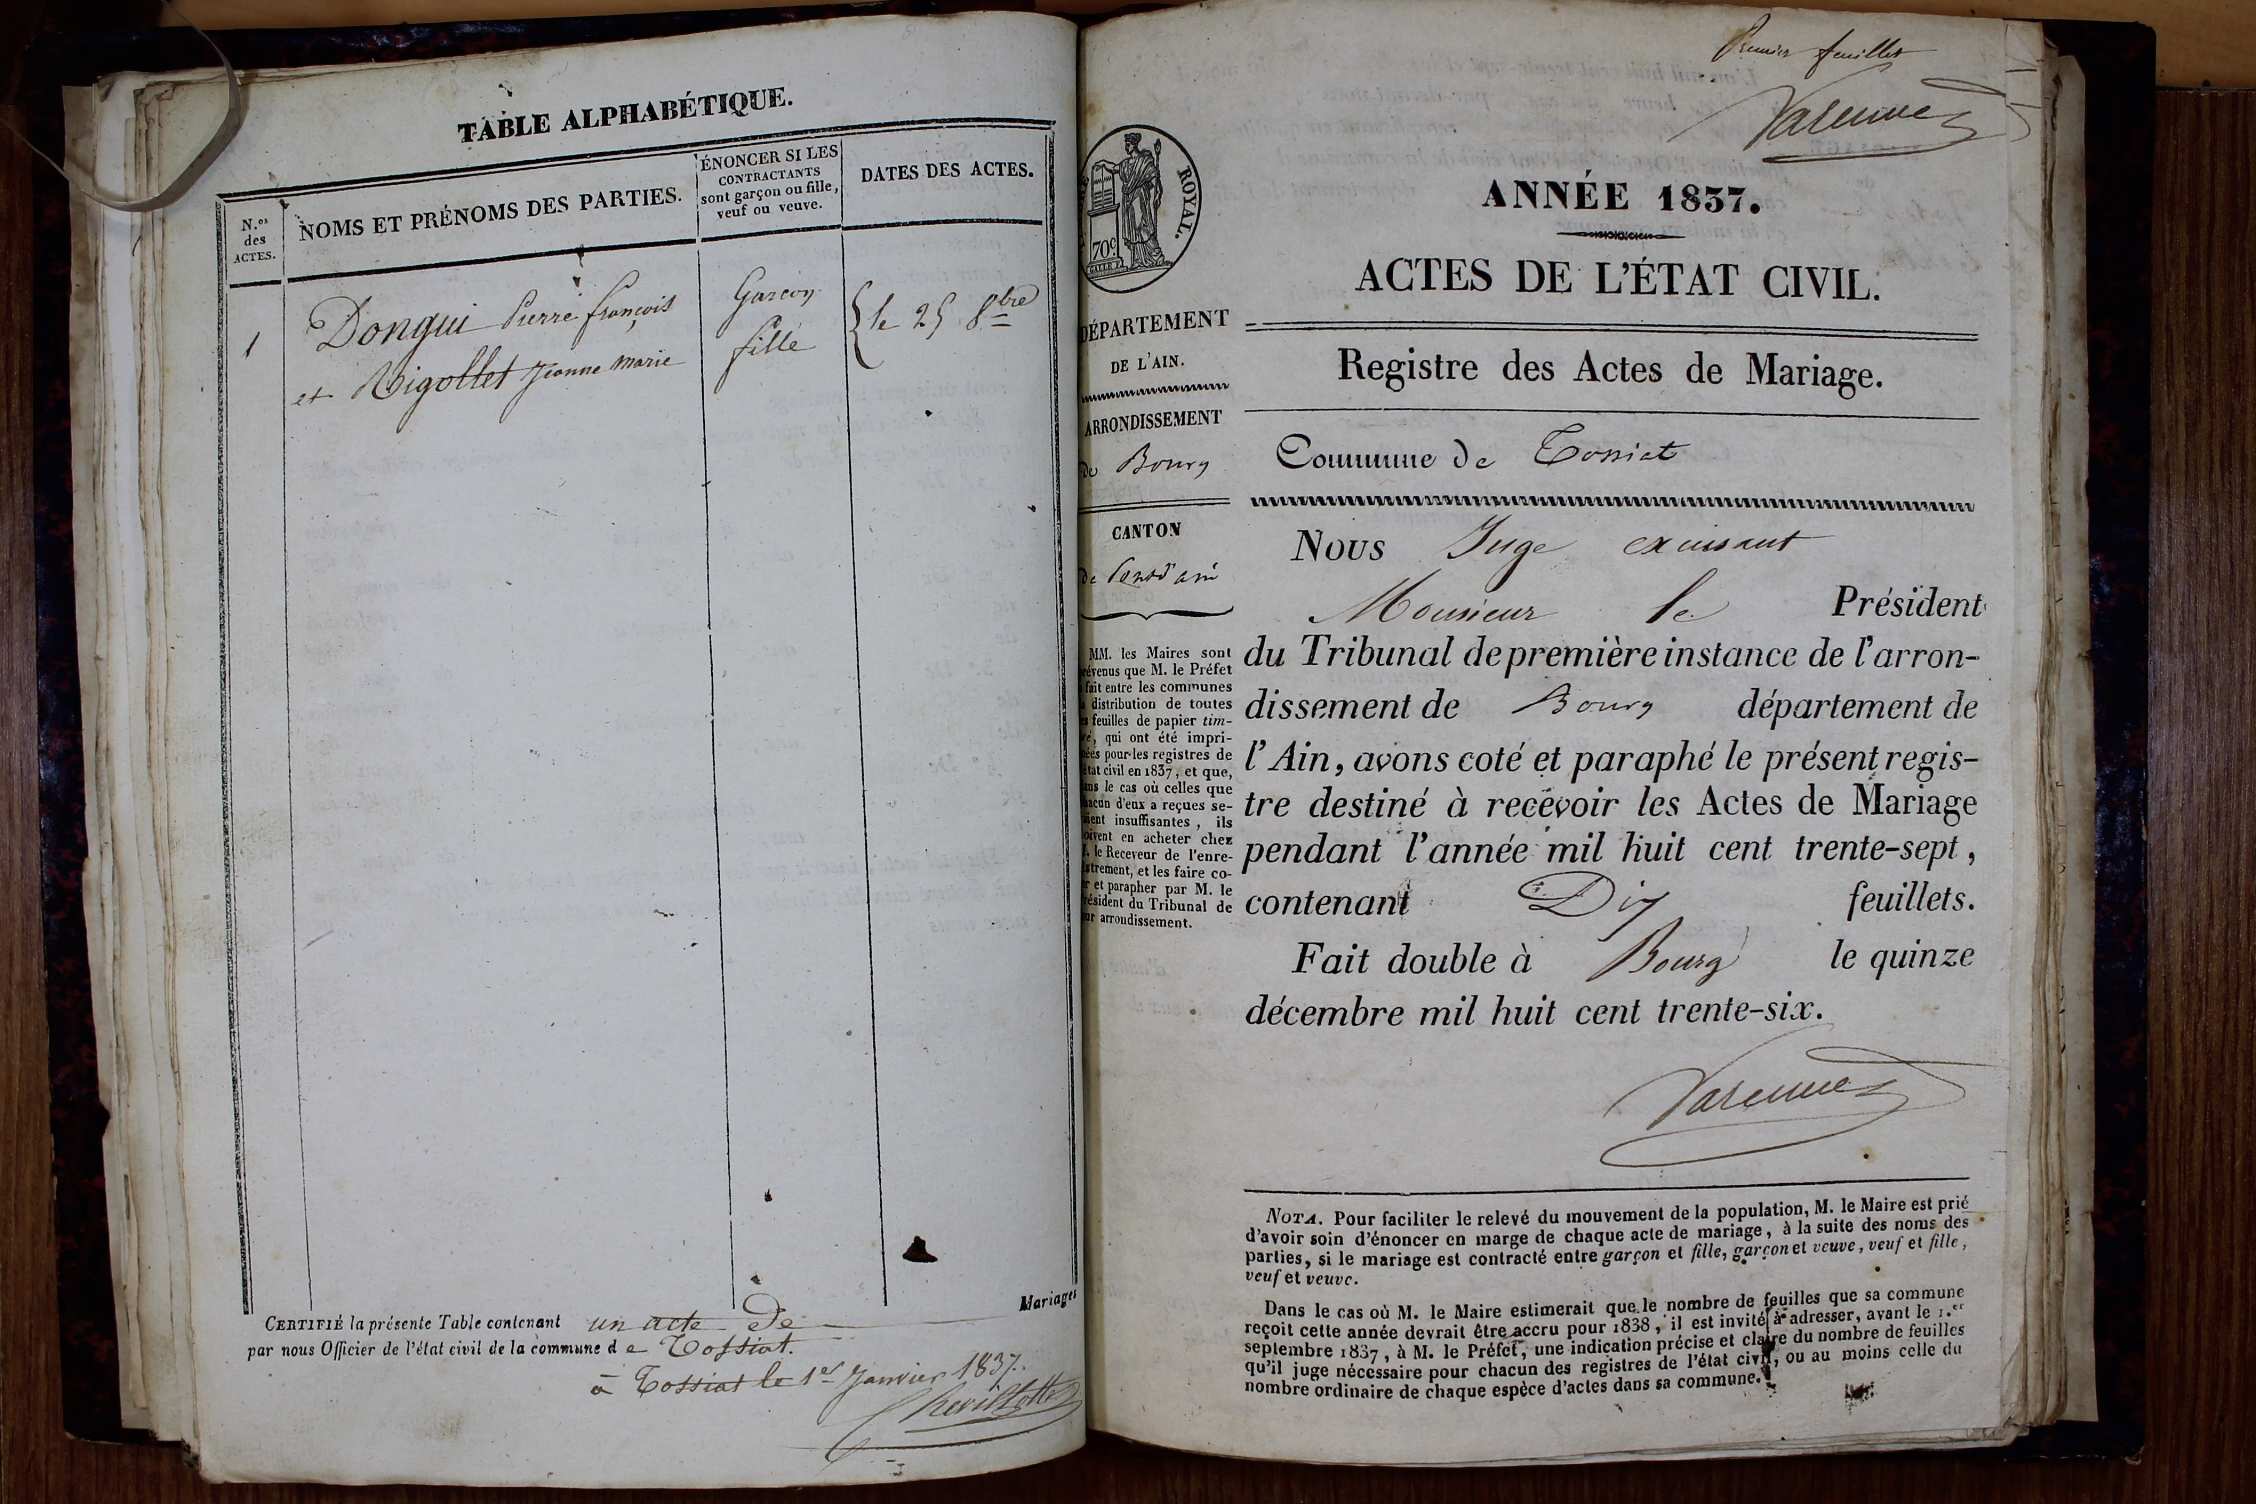 TABLE ALPHABÉTIQUE.
N.os
des
ACTES.
NOMS ET PRÉNOMS DES PARTIES.
ÉNONCER SI LES
CONTRACTANTS
sont garçon ou fille,
veuf ou veuve.
DATES DES ACTES.
1
Dongui Pierre françois
et Rigollet Jeanne Marie
Garçon
fille
le 25 8bre
Mariages
CERTIFIÉ la présente Table contenant un acte de
par nous Officier de l'état civil de la commune de Tossiat.
à Tossiat le 1er Janvier 1837.
Chevillotte
Premier feuillet
Varenne
ROYAL.
70c.
DÉPARTEMENT
DE L'AIN.
ARRONDISSEMENT
de Bourg
CANTON
de Pontd'ain
MM. les Maires sont
prévenus que M. le Préfet
a fait entre les communes
la distribution de toutes
les feuilles de papier tim-
bré, qui ont été impri-
mées pour les registres de
l'état civil en 1837, et que,
dans le cas où celles que
chacun d'eux a reçues se-
raient insuffisantes, ils
doivent en acheter chez
M. le Receveur de l'enre-
gistrement, et les faire co-
ter et parapher par M. le
Président du Tribunal de
leur arrondissement.
ANNÉE 1837.
ACTES DE L'ÉTAT CIVIL.
Registre des Actes de Mariage.
Commune de Tossiat
Nous Juge exerçant
Monsieur le Président
du Tribunal de première instance de l'arron-
dissement de Bourg département de
l'Ain, avons coté et paraphé le présent regis-
tre destiné à recevoir les Actes de Mariage
pendant l'année mil huit cent trente-sept,
contenant Dix feuillets.
Fait double à Bourg le quinze
décembre mil huit cent trente-six.
Varenne
NOTA. Pour faciliter le relevé du mouvement de la population, M. le Maire est prié
d'avoir soin d'énoncer en marge de chaque acte de mariage, à la suite des noms des
parties, si le mariage est contracté entre garçon et fille, garçon et veuve, veuf et fille,
veuf et veuve.
Dans le cas où M. le Maire estimerait que le nombre de feuilles que sa commune
reçoit cette année devrait être accru pour 1838, il est invité à adresser, avant le 1.er
septembre 1837, à M. le Préfet, une indication précise et claire du nombre de feuilles
qu'il juge nécessaire pour chacun des registres de l'état civil, ou au moins celle du
nombre ordinaire de chaque espèce d'actes dans sa commune.